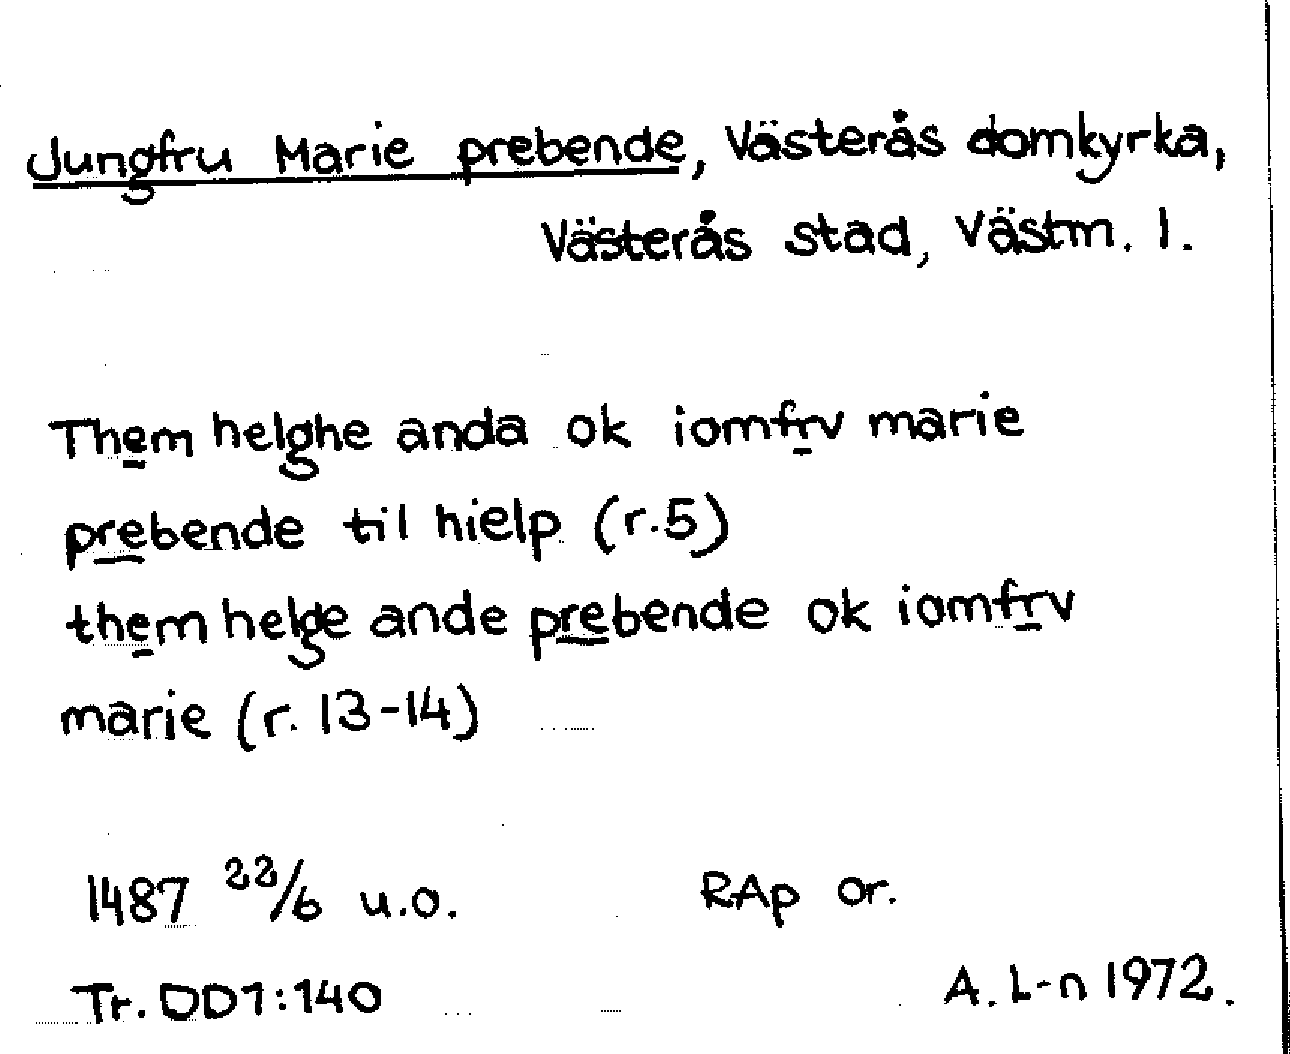 Jungfru Marie prebende, Västerås domkyrka,
Västerås stad, Västm. l.
Them helghe anda ok iomfrv marie
prebende til hielp (r.5)
them helge ande prebende ok iomfrv
marie (r. 13-14)
1487 22/6 u.o. RAp or.
Tr. DD1:140 A. L-n 1972.